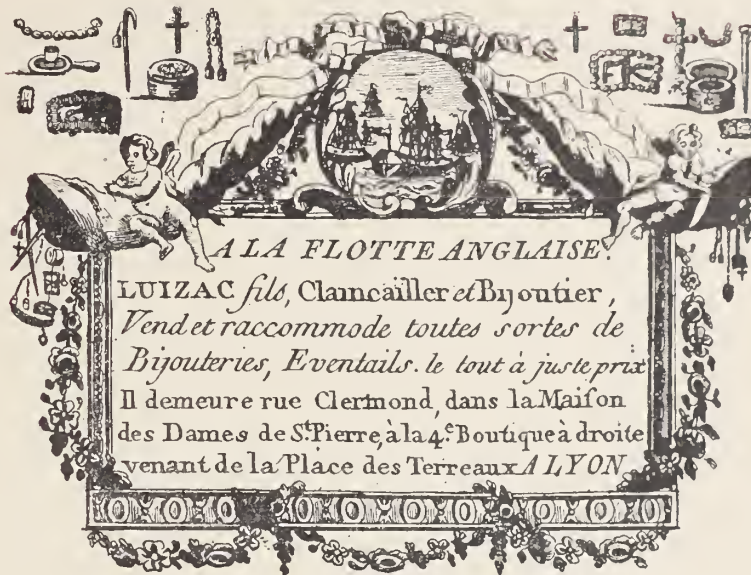 A LA FLOTTE ANGLAISE.
LUIZAC fils, Claincailler et Bijoutier,
Vend et raccommode toutes sortes de
Bijouteries, Eventails. le tout à juste prix
Il demeure rue Clermond, dans la Maiſon
des Dames de St. Pierre, à la 4e. Boutique à droite
venant de la Place des Terreaux A LYON